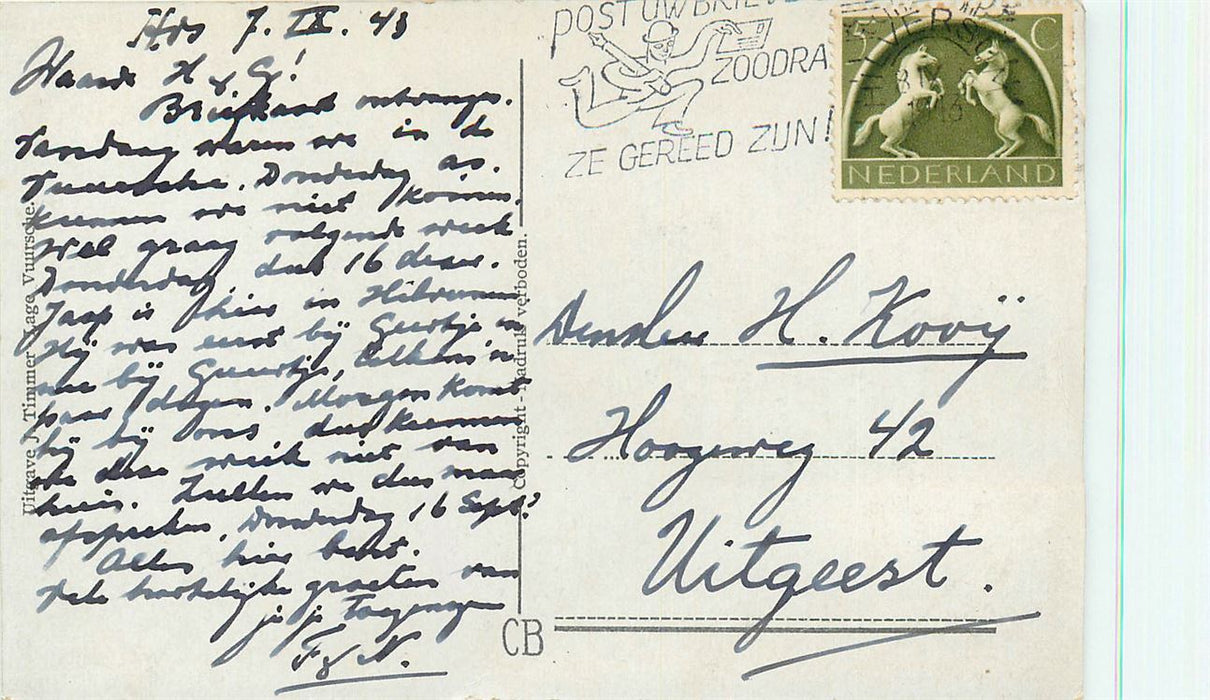 Hvs 7. IX. 43
Waarde H & G!
Briefkaart ontvangen.
Vandaag waren we in de
Vuursche. Donderdag as.
kunnen we niet komen.
Wel graag volgende week
Donderdag, dus 16 dezer.
Jaap is hier in Hilversum.
Hij was eerst bij Geertje en
nu bij Guurtje, telkens 'n
paar dagen. Morgen komt
hij bij ons, dus kunnen
we deze week niet van
huis. Zullen we dus maar
afspreken, Donderdag 16 Sept?
Alles hier best.
Vele hartelijke groeten van
F & N.
Uitgave J. Timmer, Lage Vuursche.
Copyright - Nadruk verboden.
CB
POST UW BRIEVEN
ZOODRA
ZE GEREED ZIJN!
HILVERSUM
5 C
NEDERLAND
H. Kooij
Hoogeweg 42
Uitgeest.